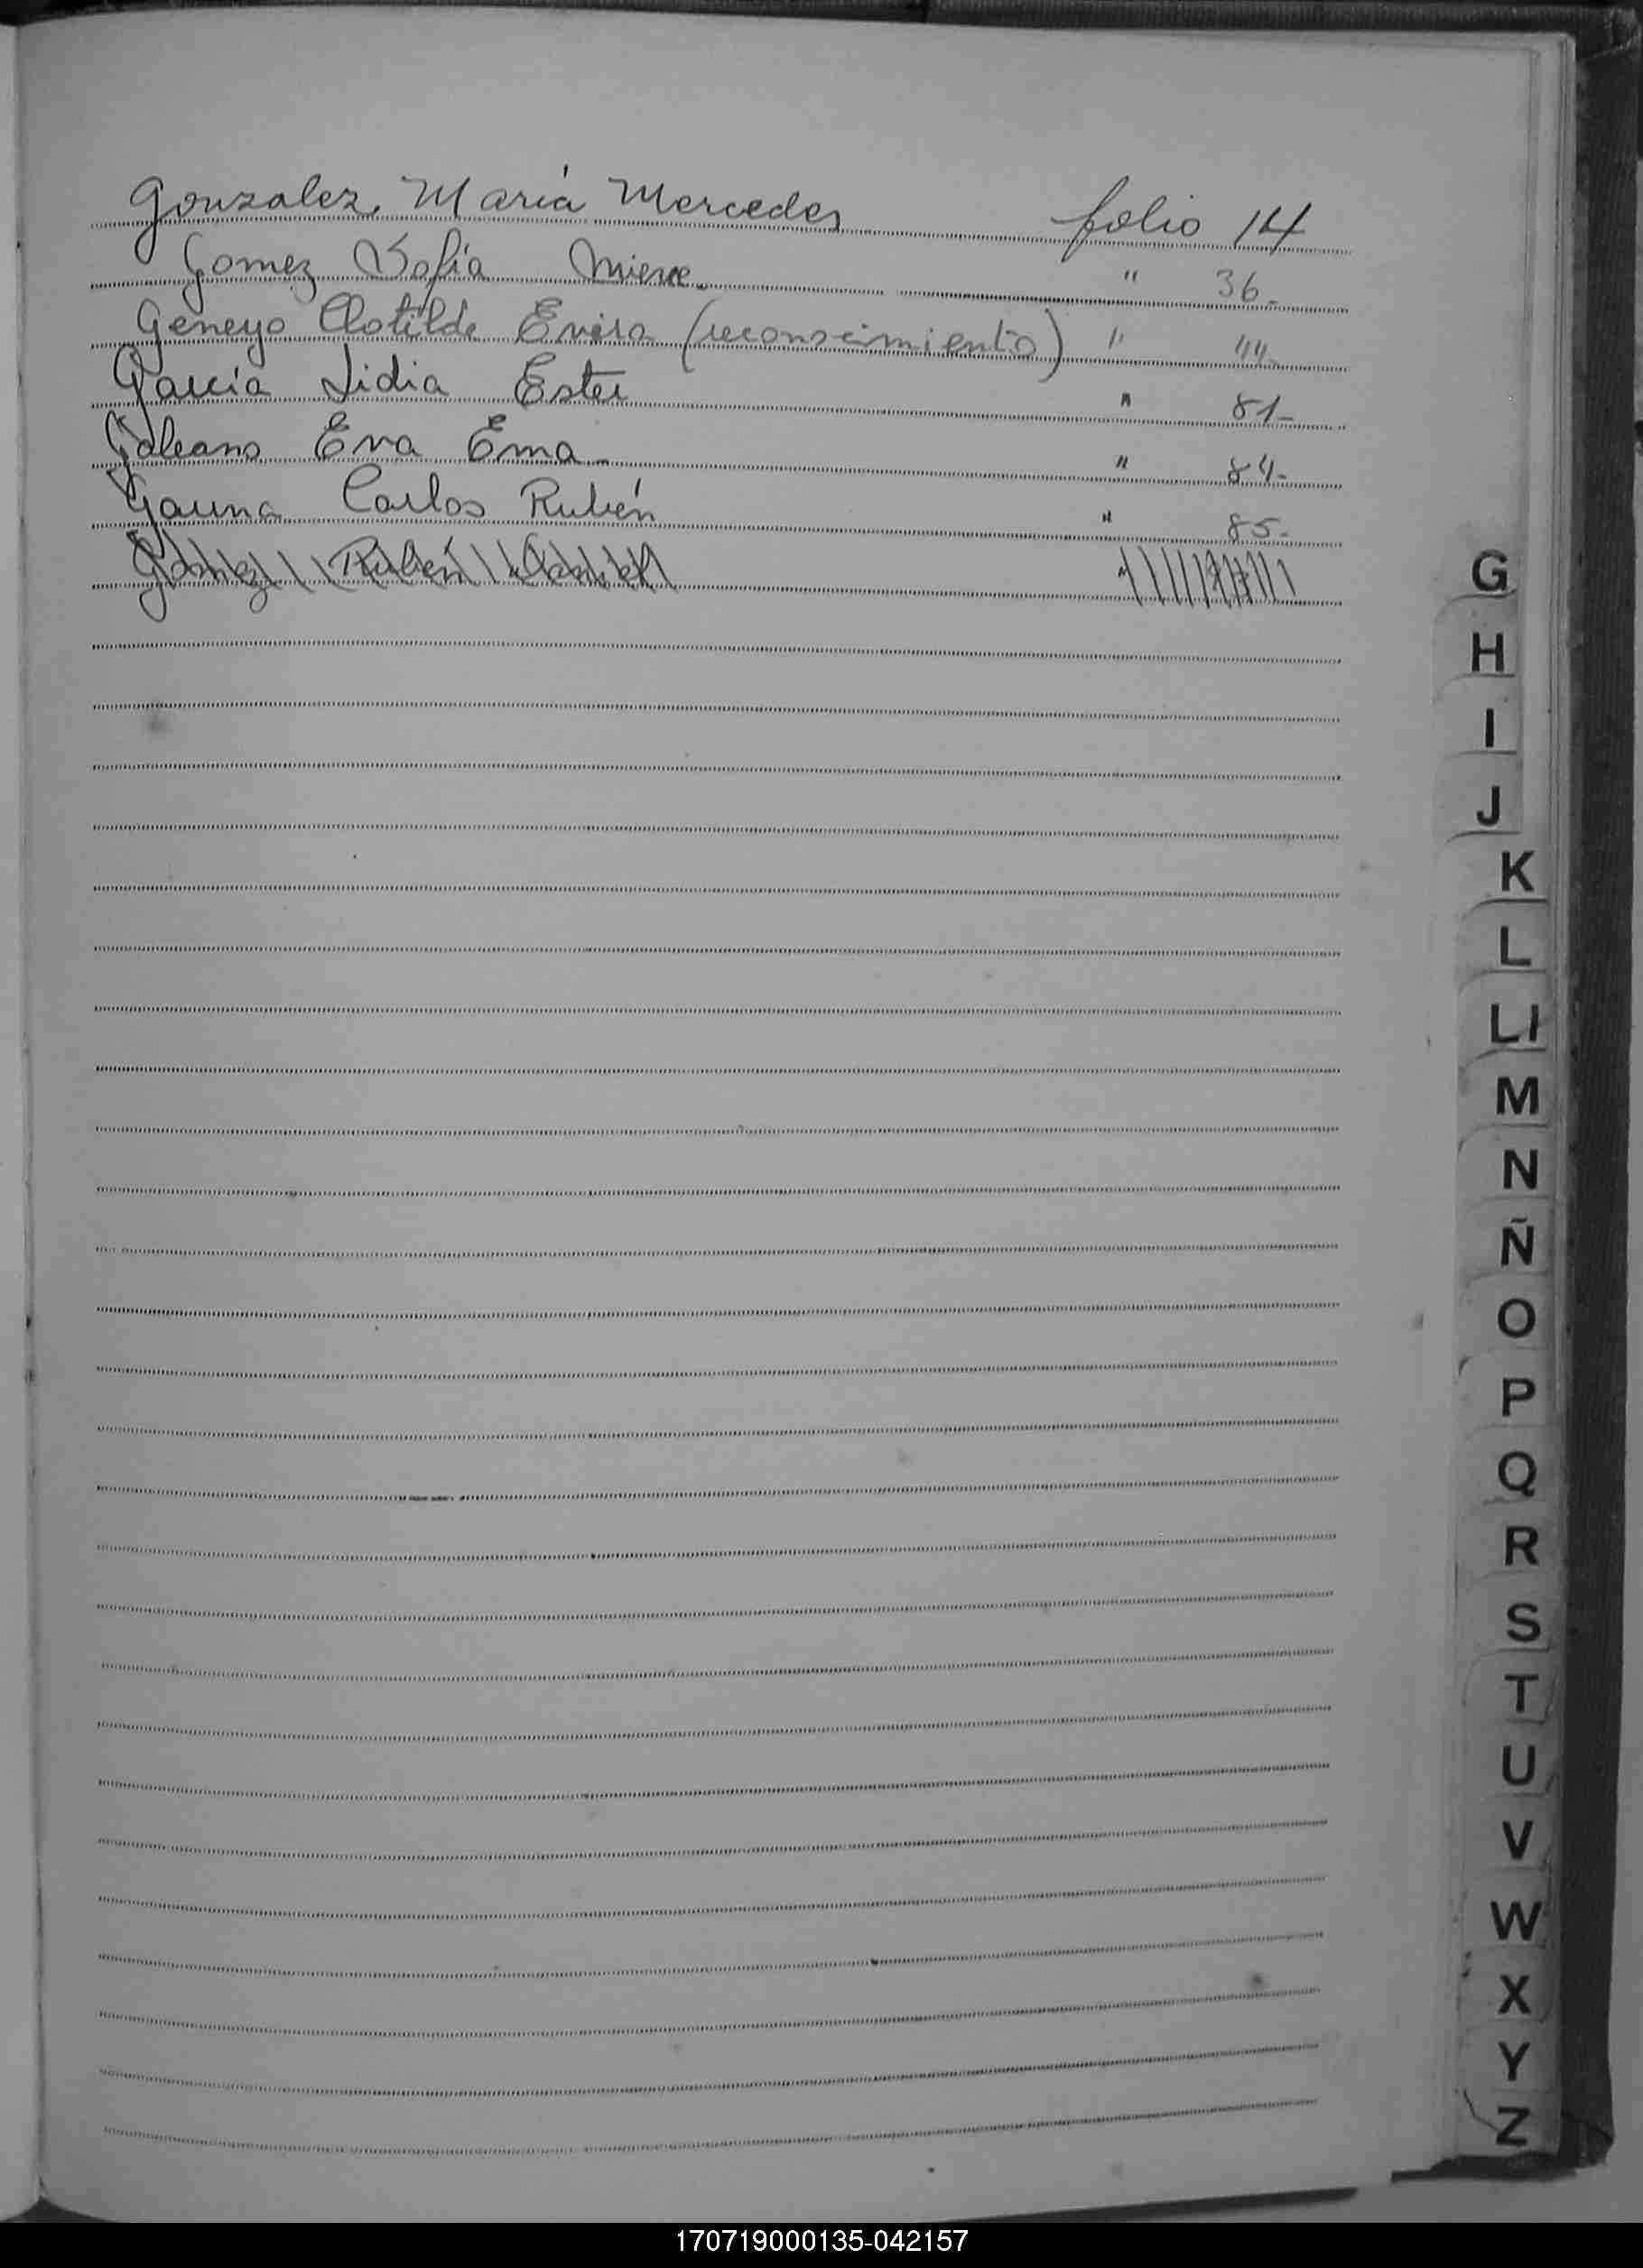 Gonzalez, María Mercedes folio 14
Gomez Sofía " 36-
Geneyo Clotilde (reconocimiento) " 44-
García Lidia Ester " 81-
Galeano Eva Ema- " 84-
Gauna Carlos Rubén " 85-
Gomez Rubén
G
H
I
J
K
L
Ll
M
N
Ñ
O
P
Q
R
S
T
U
V
W
X
Y
Z
170719000135-042157